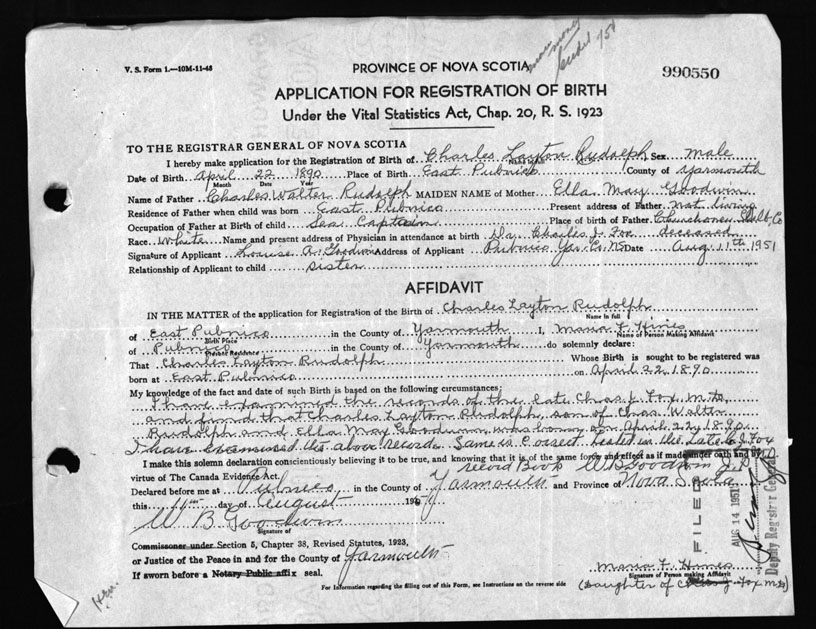 V. S. Form 1.—10M-11-48
PROVINCE OF NOVA SCOTIA
990550
APPLICATION FOR REGISTRATION OF BIRTH
Under the Vital Statistics Act, Chap. 20, R. S. 1923
TO THE REGISTRAR GENERAL OF NOVA SCOTIA
I hereby make application for the Registration of Birth of Charles Layton Rudolph Sex Male
Date of Birth April 22 1890 Place of Birth East Pubnico County of Yarmouth
Month Date Year
Name of Father Charles Walter Rudolph MAIDEN NAME of Mother Ella May Goodwin
Residence of Father when child was born East Pubnico Present address of Father Not living
Occupation of Father at Birth of child Sea Captain Place of birth of Father Shelb. Co
Race White Name and present address of Physician in attendance at birth Dr. Charles J. Fox deceased
Signature of Applicant Louise A. Goodwin Address of Applicant Pubnico Yar. Co. NS Date Aug. 11th 1951
Relationship of Applicant to child sister
AFFIDAVIT
IN THE MATTER of the application for Registration of the Birth of Charles Layton Rudolph
Name in full
of East Pubnico in the County of Yarmouth I, Maria F. Hines
Birth Place Name of Person Making Affidavit
of Pubnico in the County of Yarmouth do solemnly declare:
Present Residence
That Charles Layton Rudolph Whose Birth is sought to be registered was
born at East Pubnico on April 22, 1890
My knowledge of the fact and date of such Birth is based on the following circumstances:
I have examined the records of the late Chas J. Fox M.D.
and find that Charles Layton Rudolph, son of Chas. Walter
Rudolph and Ella May Goodwin was born on April 22, 1890.
I have examined the above record. Same is Correct. in the Late C J Fox M.D.
I make this solemn declaration conscientiously believing it to be true, and knowing that it is of the same force and effect as if made under oath and by
record Book W B Goodwin J.P.
virtue of The Canada Evidence Act.
Declared before me at Pubnico in the County of Yarmouth and Province of Nova Scotia
this 11th day of August 19
W B Goodwin
Signature of
Commissioner under Section 5, Chapter 38, Revised Statutes, 1923,
or Justice of the Peace in and for the County of Yarmouth
If sworn before a Notary Public affix seal.
Maria F. Hines
Signature of Person making Affidavit
For Information regarding the filling out of this Form, see Instructions on the reverse side
(Daughter of Fox M.D)
FILED
AUG 14 1951
Deputy Registrar General